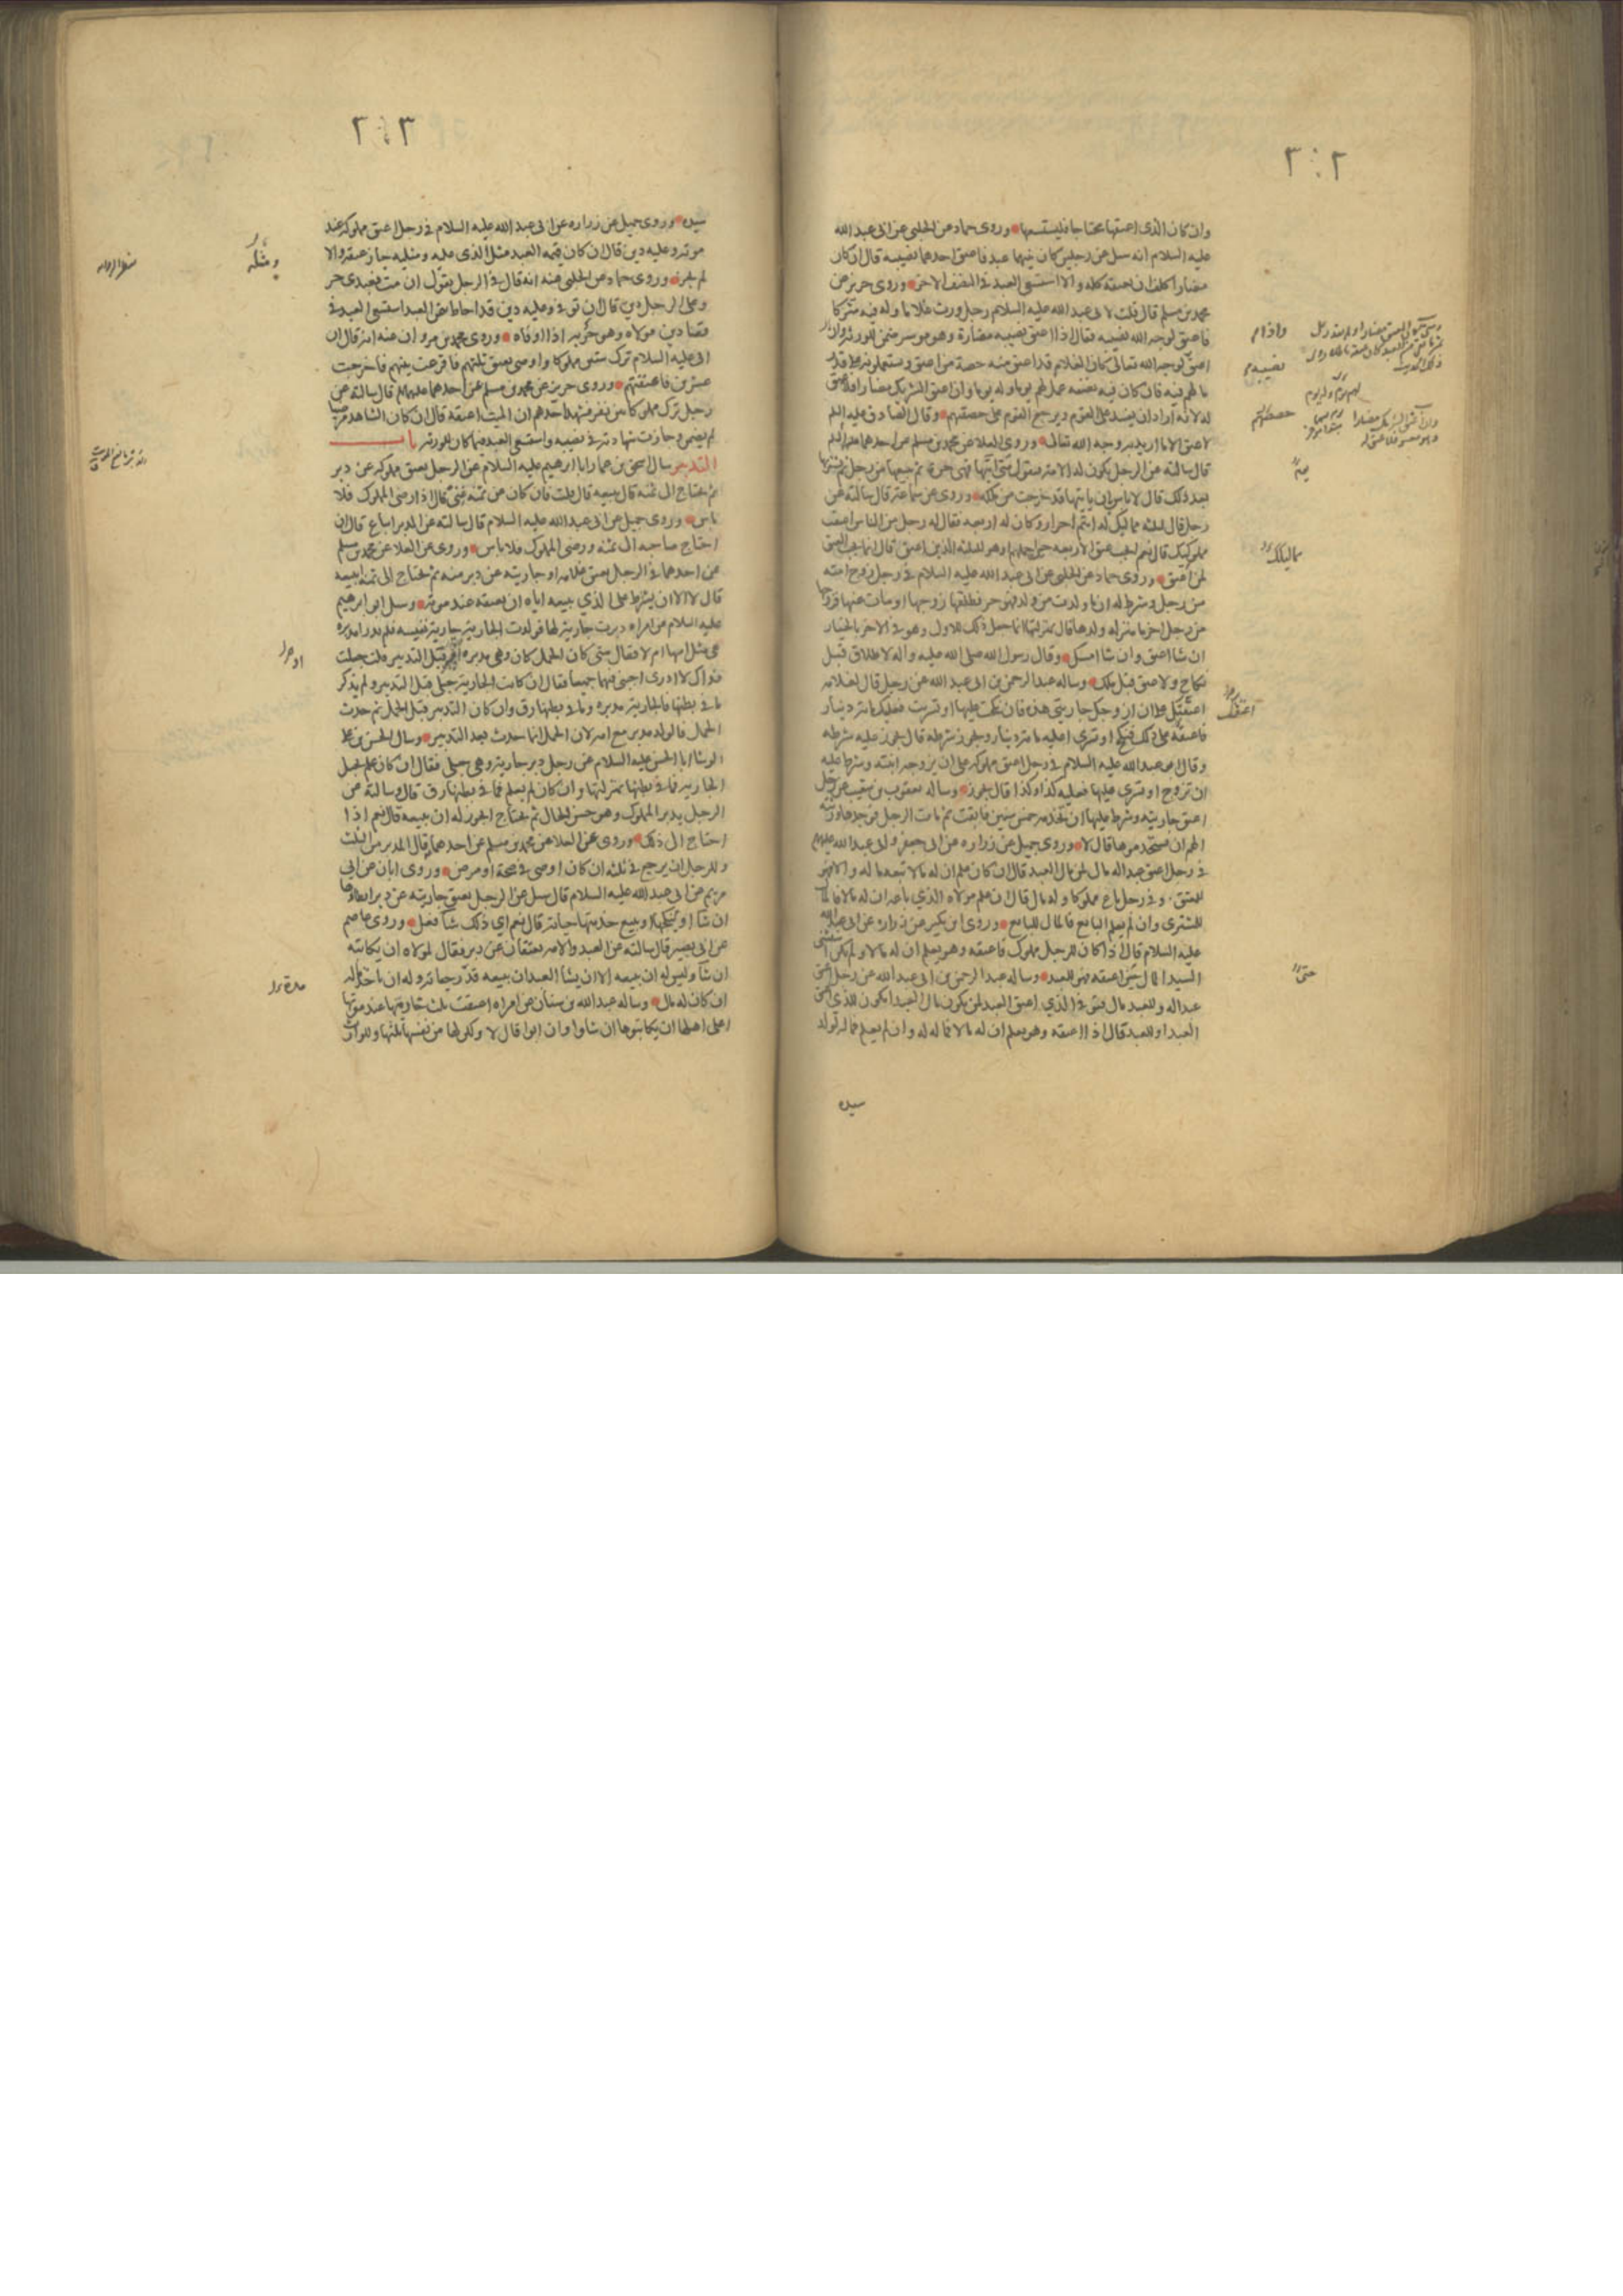 وان كان الذى اعتقها محتاجا فليستسعها وروى حماد عن الحلبى عن ابى عبد الله
عليه السلام انه سئل عن رجلين كان بينهما عبد فاعتق احدهما نصيبه قال ان كان
مضارا كلف ان يعتقه كله والا استسعى العبد فى النصف الاخر وروى حريز عن
محمد بن مسلم قال قلت لابى عبد الله عليه السلام رجل ورث غلاما وله فيه شركا
فاعتق لوجه الله نصيبه فقال اذا اعتق نصيبه مضارة وهو موسر ضمن للورثة وان
اعتق لوجه الله تعالى كان الغلام قد اعتق منه حصة من اعتق ويستعملونه على قدر
ما لهم فيه فان كان فيه نصفه عمل لهم يوما وله يوما وان اعتق الشريك مضارا فلا عتق
له لانه اراد ان يفسد على القوم ويرجع القوم على حصتهم وقال الصادق عليه السلم
لا عتق الا ما اريد به وجه الله تعالى وروى العلا عن محمد بن مسلم عن احدهما
قال سالته عن الرجل يكون له الامة فيقول متى اتيها فهى حرة ثم يبيعها من رجل ثم يشتريها
بعد ذلك قال لا باس ان ياتيها قد خرجت من ملكه وروى عن سماعة قال سالته عن
رجل قال لثلثة مماليك له انتم احرار وكان له اربعة فقال له رجل من الناس اعتقت
لمن اعتق وروى حماد عن الحلبى عن ابى عبد الله عليه السلام فى رجل زوج امته
من رجل وشرط له ان ما ولدت من ولد فهو حر فطلقها زوجها او مات عنها فزوجها
من رجل اخر ما منزلة ولدها قال بمنزلتها انما جعل ذلك للاول وهو فى الاخر بالخيار
ان شا اعتق وان شا امسك وقال رسول الله صلى الله عليه واله لا طلاق قبل
نكاح ولا عتق قبل ملك وساله عبد الرحمن بن ابى عبد الله عن رجل قال لغلامه
اعتقك على ان ازوجك جاريتى هذه فان نكحت عليها او تسريت فعليك مائة دينار
فاعتقه على ذلك فنكح او تسرى اعليه مائة دينار ويجوز شرطه قال يجوز عليه شرطه
وقال ابو عبد الله عليه السلام فى رجل اعتق مملوكه على ان يزوجه ابنته وشرط عليه
ان تزوج او تسرى عليها فعليه كذا وكذا قال يجوز وساله يعقوب بن شعيب عن رجل
اعتق جاريته وشرط عليها ان تخدمه خمس سنين فابقت ثم مات الرجل فوجدها ورثته
الهم ان يستخدموها قال لا وروى جميل عن زرارة عن ابى جعفر وابى عبد الله
فى رجل اعتق عبدا له مال لمن مال العبد قال ان كان علم ان له مالا تبعه ماله والا فهو
للمعتق وفى رجل باع مملوكا وله مال قال ان علم مولاه الذي باعه ان له مالا فالمال
للمشترى وان لم يعلم البايع فالمال للبايع وروى ابن بكير عن زرارة عن ابى عبد الله
عليه السلام قال اذا كان للرجل مملوك فاعتقه وهو يعلم ان له مالا ولم يكن استثنى
السيد المال حين اعتقه فهو للعبد وساله عبد الرحمن بن ابى عبد الله عن رجل اعتق
عبدا له وللعبد مال
العبد او للعبد قال اذا اعتقه وهو يعلم ان له مالا فماله له وان لم يعلم فماله لولد
سيده
سيده وروى جميل عن زرارة عن ابى عبد الله عليه السلام فى رجل اعتق مملوكه عند
موته وعليه دين قال ان كان قيمة العبد مثل الذى عليه ومثليه جاز عتقه والا
لم يجز وروى حماد عن الحلبى عنه انه قال فى الرجل يقول ان مت فعبدى حر
وعلى الرجل دين قال ان توفى وعليه دين قد احاط بثمن العبد استسعى العبد فى
قضا دين مولاه وهو حر بعد اذا اوفاه وروى محمد بن مروان عنه انه قال ان
ابى عليه السلام ترك ستين مملوكا واوصى بعتق ثلثهم فاقرعت بينهم فاخرجت
عشرين فاعتقتهم وروى حريز عن محمد بن مسلم عن احدهما قال سالته عن
رجل ترك مملوكا بين نفر فشهد احدهم ان الميت اعتقه قال ان كان الشاهد مرضيا
لم يضمن وجازت شهادته فى نصيبه واستسعى العبد فيما كان للورثة باب
التدبير سال اسحق بن عمار ابا ابرهيم عليه السلام عن الرجل يعتق مملوكه عن دبر
ثم يحتاج الى ثمنه قال يبيعه قال قلت فان كان عن ثمنه غنى قال اذا رضى المملوك فلا
باس وروى جميل عن ابى عبد الله عليه السلام قال سالته عن المدبر ايباع قال ان
احتاج صاحبه الى ثمنه ورضى المملوك فلا باس وروى عن العلا عن محمد بن مسلم
عن احدهما فى الرجل يعتق غلامه او جاريته عن دبر منه ثم يحتاج الى ثمنه ايبيعه
قال لا الا ان يشترط على الذي يبيعه اياه ان يعتقه عند موته وسئل ابو ابرهيم
عليه السلام عن امراة دبرت جارية لها فولدت الجارية جارية نفيسة فلم يدر امدبرة
هى مثل امها ام لا فقال متى كان الحمل كان وهى مدبرة او قبل التدبير قلت جعلت
فداك لا ادرى اجبنى فيهما جميعا فقال ان كانت الجارية حبلى قبل التدبير ولم يذكر
ما فى بطنها فالجارية مدبرة وما فى بطنها رق وان كان التدبير قبل الحمل ثم حدث
الحمل فالولد مدبر مع امه لان الحمل انما حدث بعد التدبير وسال الحسن بن على
الوشا ابا الحسن عليه السلام عن رجل دبر جارية وهى حبلى فقال ان كان علم بحبل
الجارية فما فى بطنها بمنزلتها وان كان لم يعلم فما فى بطنها رق قال وسالته عن
الرجل يدبر المملوك وهو حسن الحال ثم يحتاج ايجوز له ان يبيعه قال نعم اذا
احتاج الى ذلك وروى عن العلا عن محمد بن مسلم عن احدهما قال المدبر من الثلث
وللرجل ان يرجع فى ثلثه ان كان اوصى فى صحة او مرض وروى ابان عن ابى
مريم عن ابى عبد الله عليه السلام قال سئل عن الرجل يعتق جاريته عن دبر ايطاوها
ان شا او ينكحها او يبيع خدمتها حياته قال نعم اي ذلك شا فعل وروى عاصم
عن ابى بصير قال سالته عن العبد والامة يعتقان عن دبر فقال لمولاه ان يكاتبه
ان شا وليس له ان يبيعه الا ان يشا العبد ان يبيعه قدر حياته وله ان ياخذ ماله
ان كان له مال وساله عبد الله بن سنان عن امراة اعتقت ثلث خادمها عند موتها
اعلى اهلها ان يكاتبوها ان شاوا وان ابوا قال لا ولكن لها من نفسها ثلثها وللوارث